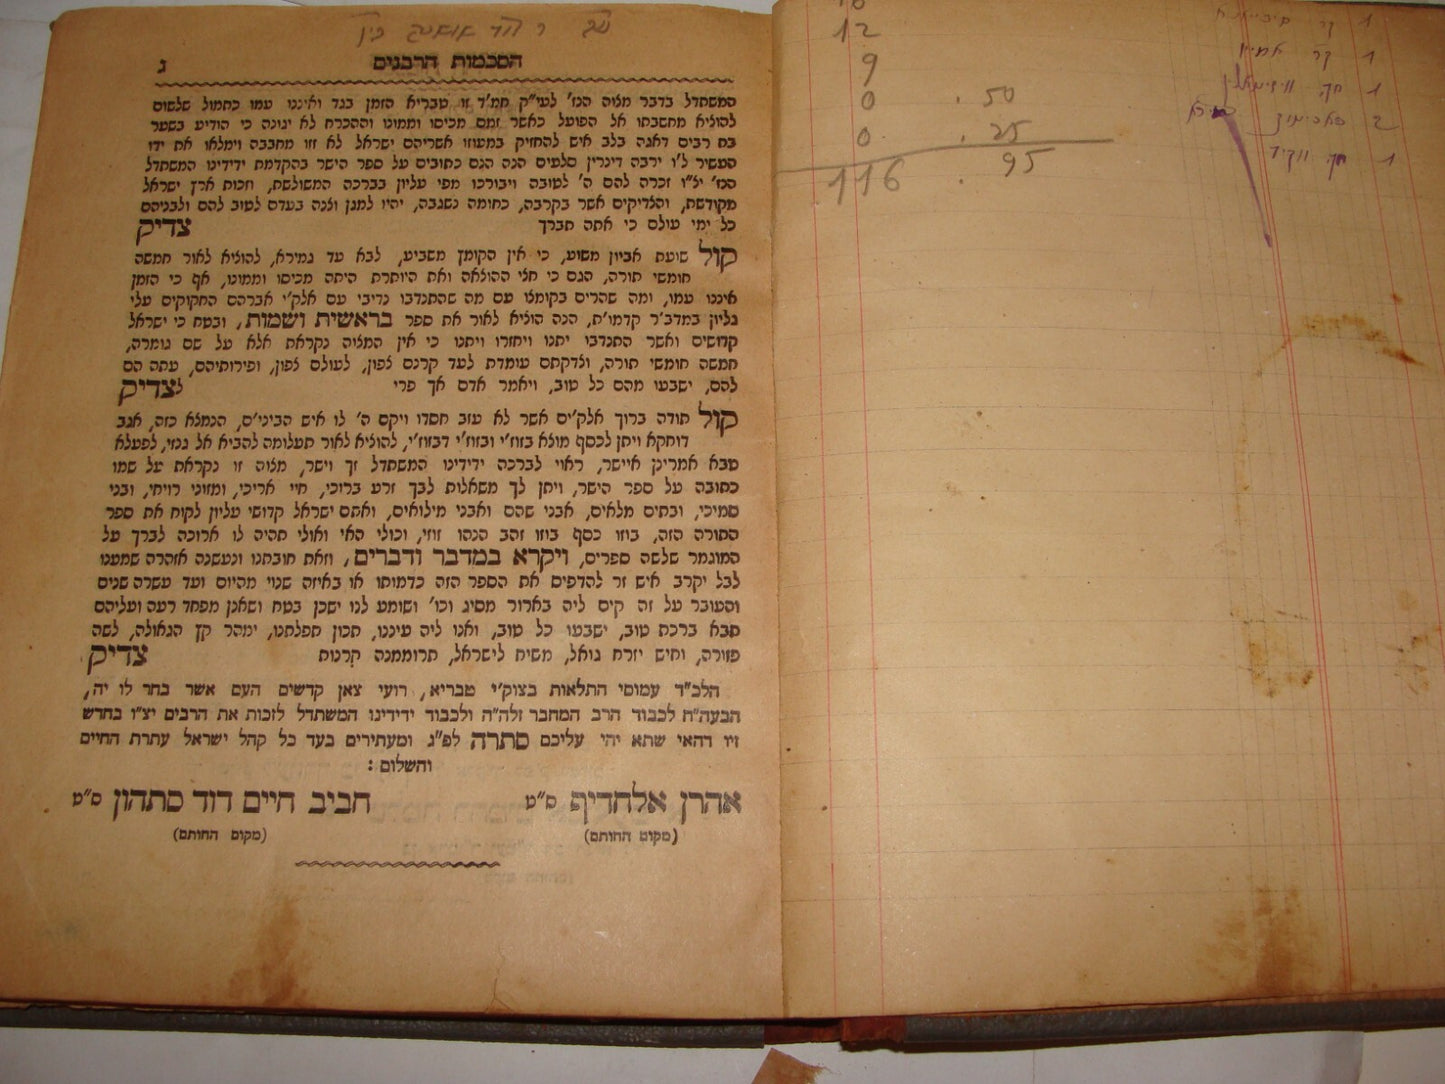 הסכמות הרבנים ג
המשתדל בדבר מצוה הנז' לעי"ק תמ"ד זו טבריא הזמן בגד ואיננו עמו כתמול שלשום
להוציא מחשבתו אל הפועל כאשר זמם מכיסו וממונו וההכרח לא יגונה כי הודיע בשער
בת רבים דאגה בלב איש להחזיק במעוזו אשריהם ישראל לא זזו מחבבה וימלאו את ידו
העשיר ל"ו ירבה דינרין סלעים הנה הנם כתובים על ספר הישר בהקדמת ידידינו המשתדל
הנז' יל"ו זכרה להם ה' לטובה ויבורכו מפי עליון בברכה המשולשת, וזכות ארץ ישראל
מקודשת, והצדיקים אשר בקרבה, כחומה נשגבה, יהיו למגן וצנה בעדם לטוב להם ולבניהם
כל ימי עולם כי אתה תברך צדיק
קול שועת אביון משוע, כי אין הקומץ משביע, לבא עד גמירא, להוציא לאור חמשה
חומשי תורה, הגם כי חצי ההוצאה ואת היותרת היתה מכיסו וממונו, אף כי הזמן
איננו עמו, ומה שהרים בקומצו עם מה שהתנדבו נדיבי עם אלק'י אברהם החקוקים עלי
גליון במדב"ר קדמו"ת, הנה הוציא לאור את ספר בראשית ושמות, ובטח כי ישראל
קדושים ואשר התנדבו יתנו ויחזרו ויתנו כי אין המצוה נקראת אלא על שם גומרה,
חמשה חומשי תורה, וצדקתם עומדת לעד קרנם צפון, לעולם צפון, ופירותיהם, עתה הם
להם, ישבעו מהם כל טוב, ויאמר אדם אך פרי לצדיק
קול תודה ברוך אלק'ים אשר לא עזב חסדו ויקם ה' לו איש הביני"ם, הנמלא כזה, אגב
דוחקא ויתן לכסף מוצא בזוז'י ובזוז'י דבזוז'י, להוציא לאור תעלומה להביא אל גנזי, לפעלא
טבא אמרינן איישר, ראוי לברכה ידידינו המשתדל זך וישר, מצוה זו נקראת על שמו
כתובה על ספר הישר, ויתן לך משאלות לבך זרע ברוכי, חיי אריכי, ומזוני רויחי, ובני
סמיכי, ובתים מלאים, אבני שהם ואבני מילואים, ואתם ישראל קדושי עליון לקוח את ספר
התורה הזה, בוזו כסף בוזו זהב הנהו זוזי, וכולי האי ואולי תהיה לו ארוכה לברך על
המוגמר שלשה ספרים, ויקרא במדבר ודברים, וזאת חובתנו ונעשנה אזהרה שמענו
לבל יקרב איש זר להדפים את הספר הזה כדמותו או באיזה שנוי מהיום ועד עשרה שנים
והעובר על זה קים ליה בארור מסיג וכו' ושומע לנו ישכן בטח ושאנן מפחד רעה ועליהם
תבא ברכת טוב, ישבעו כל טוב, ואנו ליה עיננו, תכון תפלתנו, ימהר קץ הגאולה, לשה
פזורה, וחיש יזרח גואל, משיח לישראל, תרוממנה קרנות צדיק
הלכ"ד עמוסי התלאות בצוק'י טבריא, רועי צאן קדשים העם אשר בחר לו יה,
הבעה"ח לכבוד הרב המחבר זלה"ה ולכבוד ידידינו המשתדל לזכות את הרבים יצ"ו בחדש
זיו דהאי שתא יהי עליכם סתרה לפ"ג ומעתירים בעד כל קהל ישראל עתרת החיים
והשלום:
אהרן אלחדיף ס"ט חביב חיים דוד סתהון ס"ט
(מקום החותם) (מקום החותם)
12
9
0 . 50
0 . 25
116 . 95
1 קר
1 קר
1 חק
2
1 חק